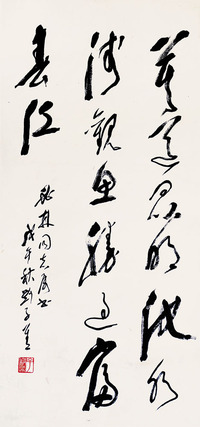 莫道昆明池水
浅观鱼胜过富
春江
林同志属书
戊午秋